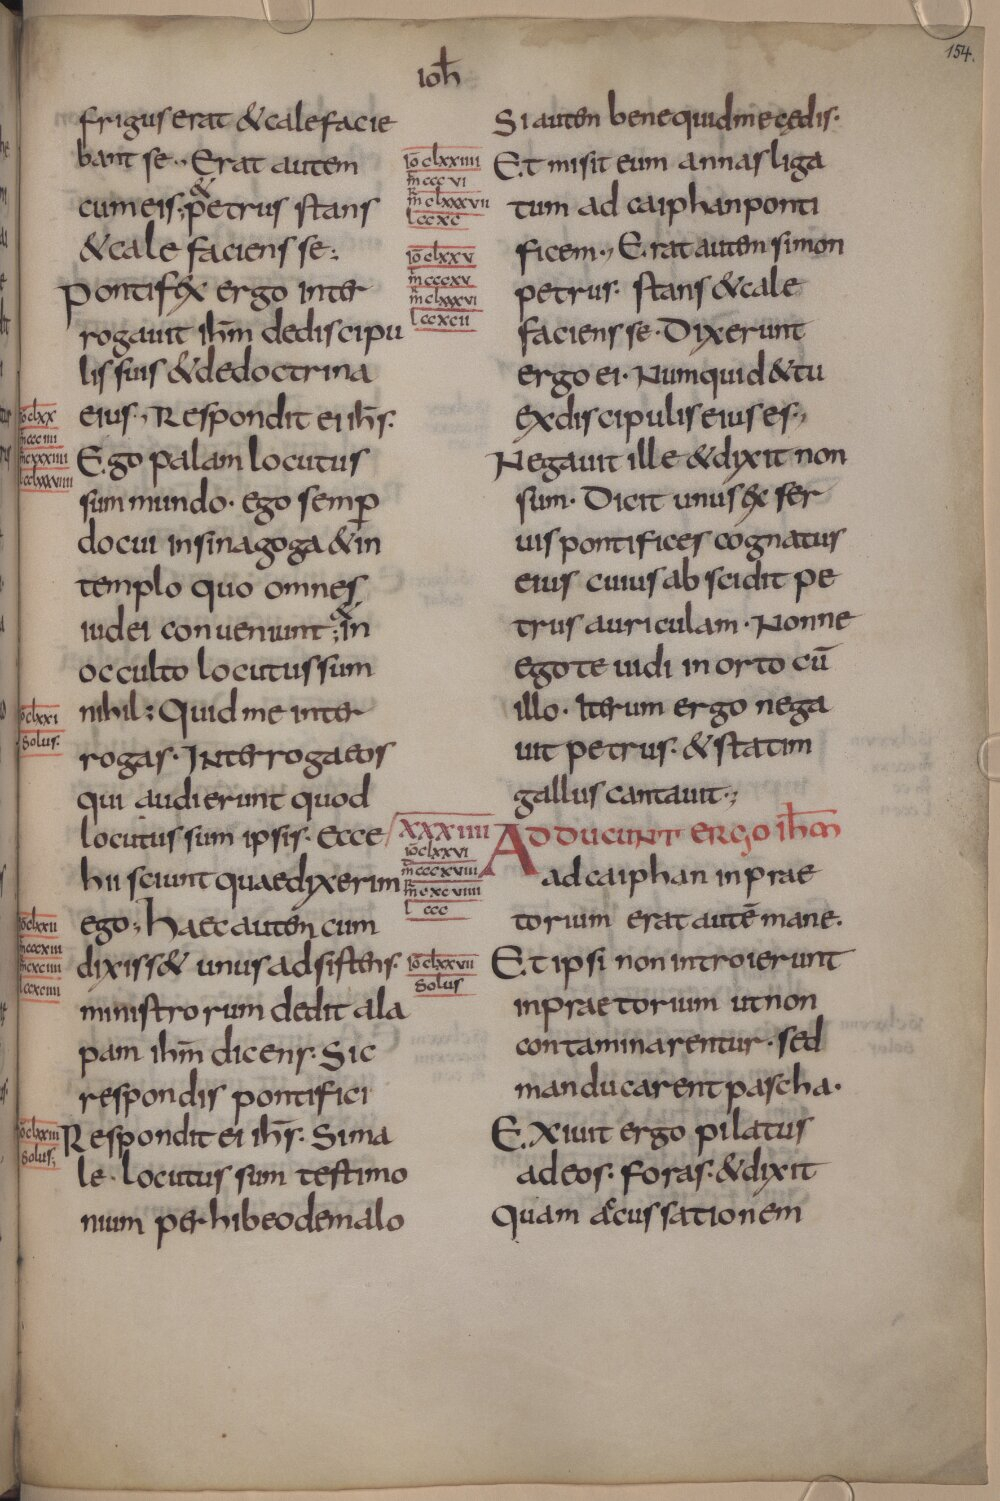 154.
ioħ
frigus erat & calefacie
bant se., Erat autem
cum eis; & petrus stans
& cale faciens se:
Pontifex ergo inter
rogauit ihm̄ de discipu
lis suis & de doctrina
eius., Respondit ei ihs̄.
Ego palam locutus
sum mundo. ego semꝑ
docui in sinagoga & in
templo quo omnes
iudei conueniunt; & in
occulto locutus sum
nihil; Quid me inter
rogas. Interroga eos
qui audierunt quod
locutus sum ipsis. Ecce
hii sciunt quae dixerim
ego; haec autem cum
dixiss& unus adsistens.
ministrorum dedit ala
pam ihm̄ dicens. Sic
respondis pontifici
Respondit ei ihs̄. Si ma
le. locutus sum testimo
nium perhibe o de malo
iō clxx
m̄ ccc iiii
m̄ cxxxiiii
l cclxxxviiii
iō clxxi
Solus.
iō clxxii
m̄ cccxiii
m̄ cxciiii
l ccxciiii
iō clxxiii
Solus;
Si autem bene quid me cędis.
Et misit eum annas liga
tum ad caiphan ponti
ficem., Erat autem simon
petrus. stans & cale
faciens se. Dixerunt
ergo ei. Numquid & tu
ex discipulis eius es.,
Negauit ille & dixit non
sum. Dicit unus ex ser
uis pontifices cognatus
eius cuius abscidit pe
trus auriculam. Nonne
ego te uidi in orto cū
illo. Iterum ergo nega
uit petrus. & statim
gallus cantauit.;
ADDUCUNT ERGO ihm̄
ad caiphan in prae
torium erat autē mane.
Et ipsi non introierunt
in praetorium ut non
contaminarentur. sed
manducarent pascha.
Exiuit ergo pilatus
ad eos. foras. & dixit
Quam accussationem
iō clxxiiii
m̄ ccc vi
m̄ clxxxvii
l ccxc
iō clxxv
m̄ cccxv
m̄ clxxxvi
l ccxcii
XXXIIII
iō clxxvi
m̄ cccxviii
m̄ cxcviiii
l ccc
iō clxxvii
Solus